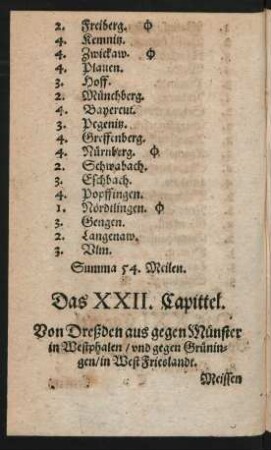 2. Freiberg. Φ
4. Kemnitz.
4. Zwickaw. Φ
4. Plauen.
3. Hoff.
2. Münchberg.
4. Bayereut.
3. Pegenitz.
4. Greffenberg.
4. Nürnberg. Φ
2. Schwabach.
3. Eschbach.
4. Popffingen.
1. Nördtlingen. Φ
3. Gengen.
2. Langenaw.
3. Vlm.
Summa 54. Meilen.
Das XXII. Capittel.
Von Dreßden aus gegen Münster
in Westphalen / vnd gegen Grünin-
gen / in West Frieslandt.
Meissen